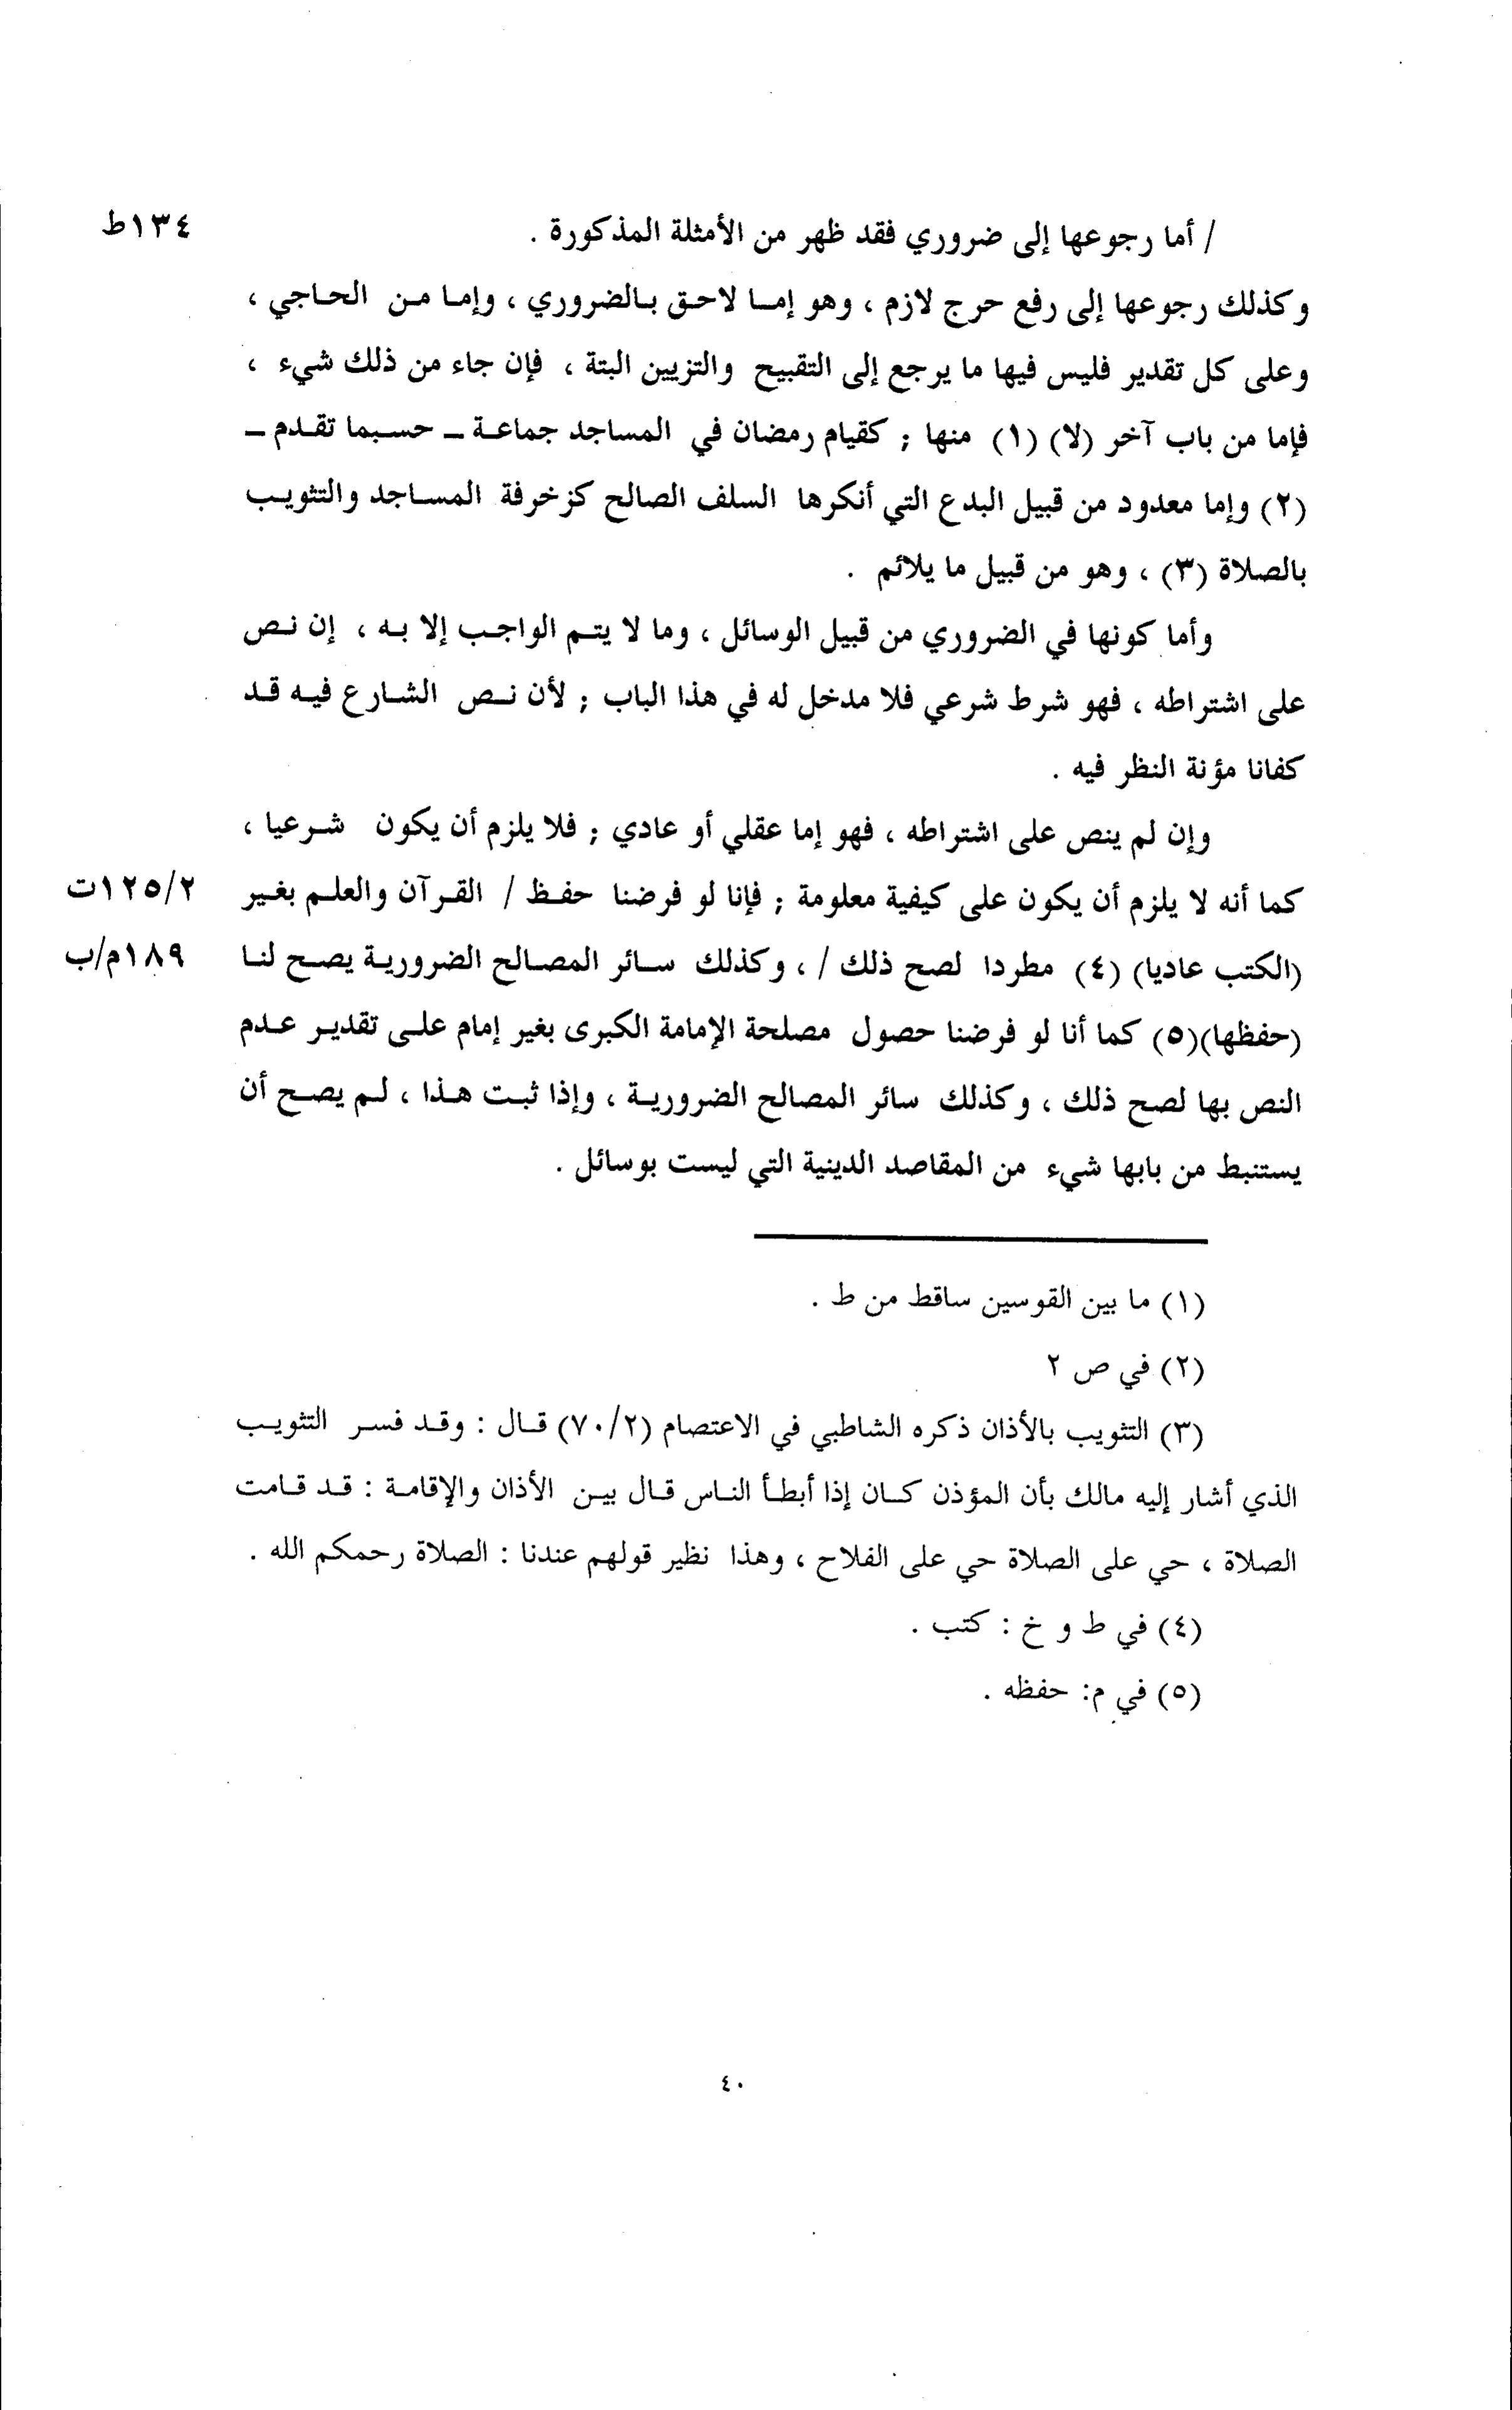 / أما رجوعها إلى ضروري فقد ظهر من الأمثلة المذكورة . ١٣٤ط
وكذلك رجوعها إلى رفع حرج لازم ، وهو إمـا لاحـق بـالضروري ، وإمـا مـن الحـاجي ،
وعلى كل تقدير فليس فيها ما يرجع إلى التقبيح والتزيين البتة ، فإن جاء من ذلك شيء ،
فإما من باب آخر (لا) (١) منها ; كقيام رمضان في المساجد جماعـة ـ حسـبما تقـدم ـ
(٢) وإما معدود من قبيل البدع التي أنكرها السلف الصالح كزخرفة المسـاجد والتثويـب
بالصلاة (٣) ، وهو من قبيل ما يلائم .
وأما كونها في الضروري من قبيل الوسائل ، وما لا يتـم الواجـب إلا بـه ، إن نـص
على اشتراطه ، فهو شرط شرعي فلا مدخل له في هذا الباب ; لأن نـص الشـارع فيـه قـد
كفانا مؤنة النظر فيه .
وإن لم ينص على اشتراطه ، فهو إما عقلي أو عادي ; فلا يلزم أن يكون شـرعيا ،
كما أنه لا يلزم أن يكون على كيفية معلومة ; فإنا لو فرضنا حفـظ / القـرآن والعلـم بغـير ١٢٥/٢ت
(الكتب عاديا) (٤) مطردا لصح ذلك / ، وكذلك سـائر المصـالح الضروريـة يصـح لنـا ١٨٩م/ب
(حفظها)(٥) كما أنا لو فرضنا حصول مصلحة الإمامة الكبرى بغير إمام علـى تقديـر عـدم
النص بها لصح ذلك ، وكذلك سائر المصالح الضروريـة ، وإذا ثبـت هـذا ، لـم يصـح أن
يستنبط من بابها شيء من المقاصد الدينية التي ليست بوسائل .
(١) ما بين القوسين ساقط من ط .
(٢) في ص ٢
(٣) التثويب بالأذان ذكره الشاطبي في الاعتصام (٧٠/٢) قـال : وقـد فسـر التثويـب
الذي أشار إليه مالك بأن المؤذن كـان إذا أبطـأ النـاس قـال بيـن الأذان والإقامـة : قـد قـامت
الصلاة ، حي على الصلاة حي على الفلاح ، وهذا نظير قولهم عندنا : الصلاة رحمكم الله .
(٤) في ط و خ : كتب .
(٥) في م: حفظه .
٤٠